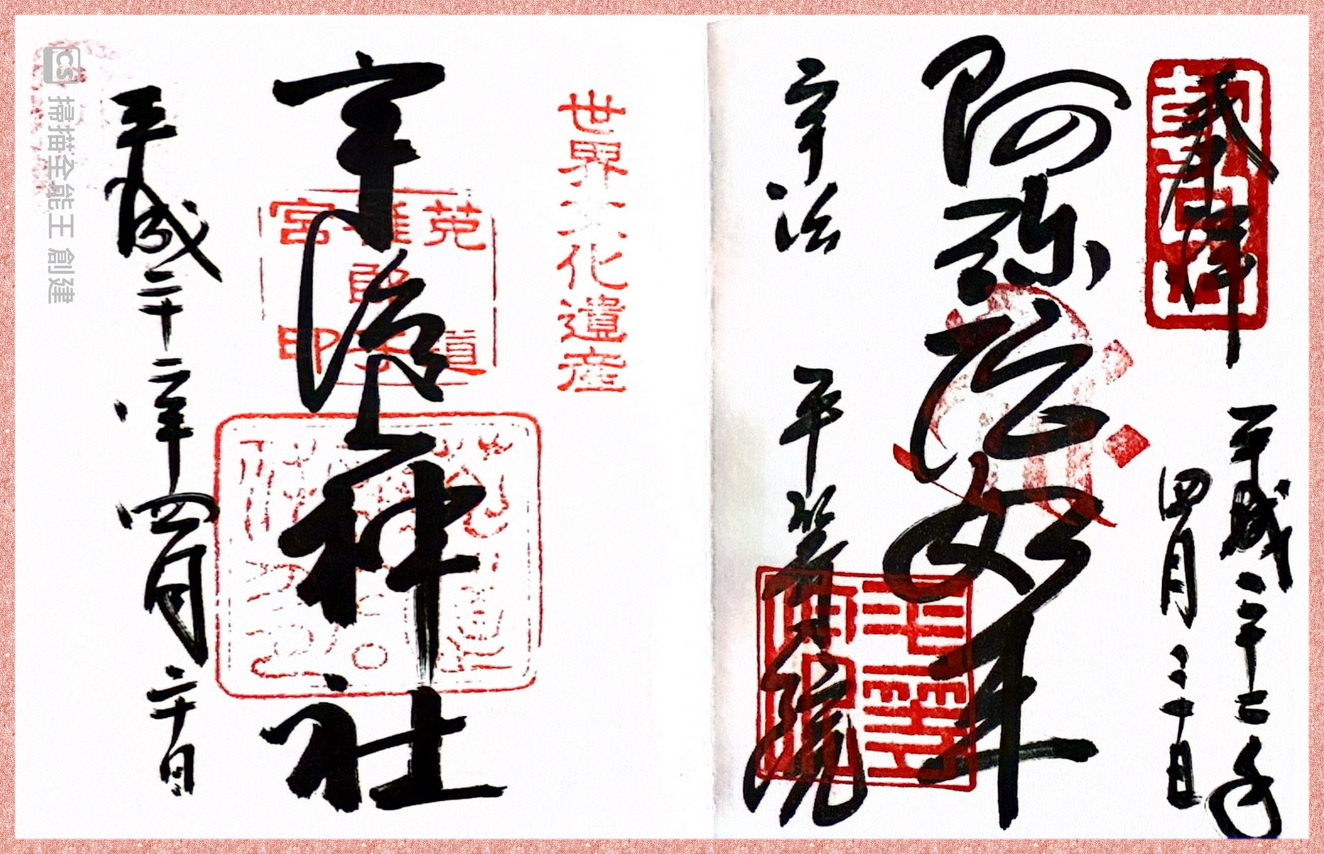 奉拝
平成二十二年
四月二十日
阿弥陀如来
宇治 平等院
世界文化遺産
宇治上神社
平成二十二年四月二十日
菟道
稚郎子
宮印
掃描全能王 創建